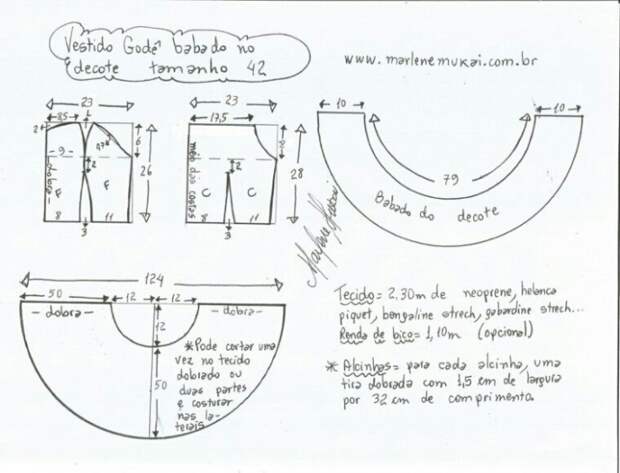 Vestido Godê babado no
decote tamanho 42
www.marlenemukai.com.br
23
8,5
2
2
6
9
dobra
F
F
8
11
3
26
23
17,5
8
2
meio das costas
C
C
8
11
3
28
10
10
79
Babado do decote
Marlene Mukai
124
50
12
12
- dobra -
- dobra -
12
50
*Pode cortar uma
vez no tecido
dobrado ou
duas partes
e costurar
nas la-
terais
Tecido= 2.30m de neoprene, helanca
piquet, bengaline strech, gabardine strech...
Renda de bico= 1,10m (opcional)
* Alcinhas= para cada alcinha, uma
tira dobrada com 1,5 cm de largura
por 32 cm de comprimento.